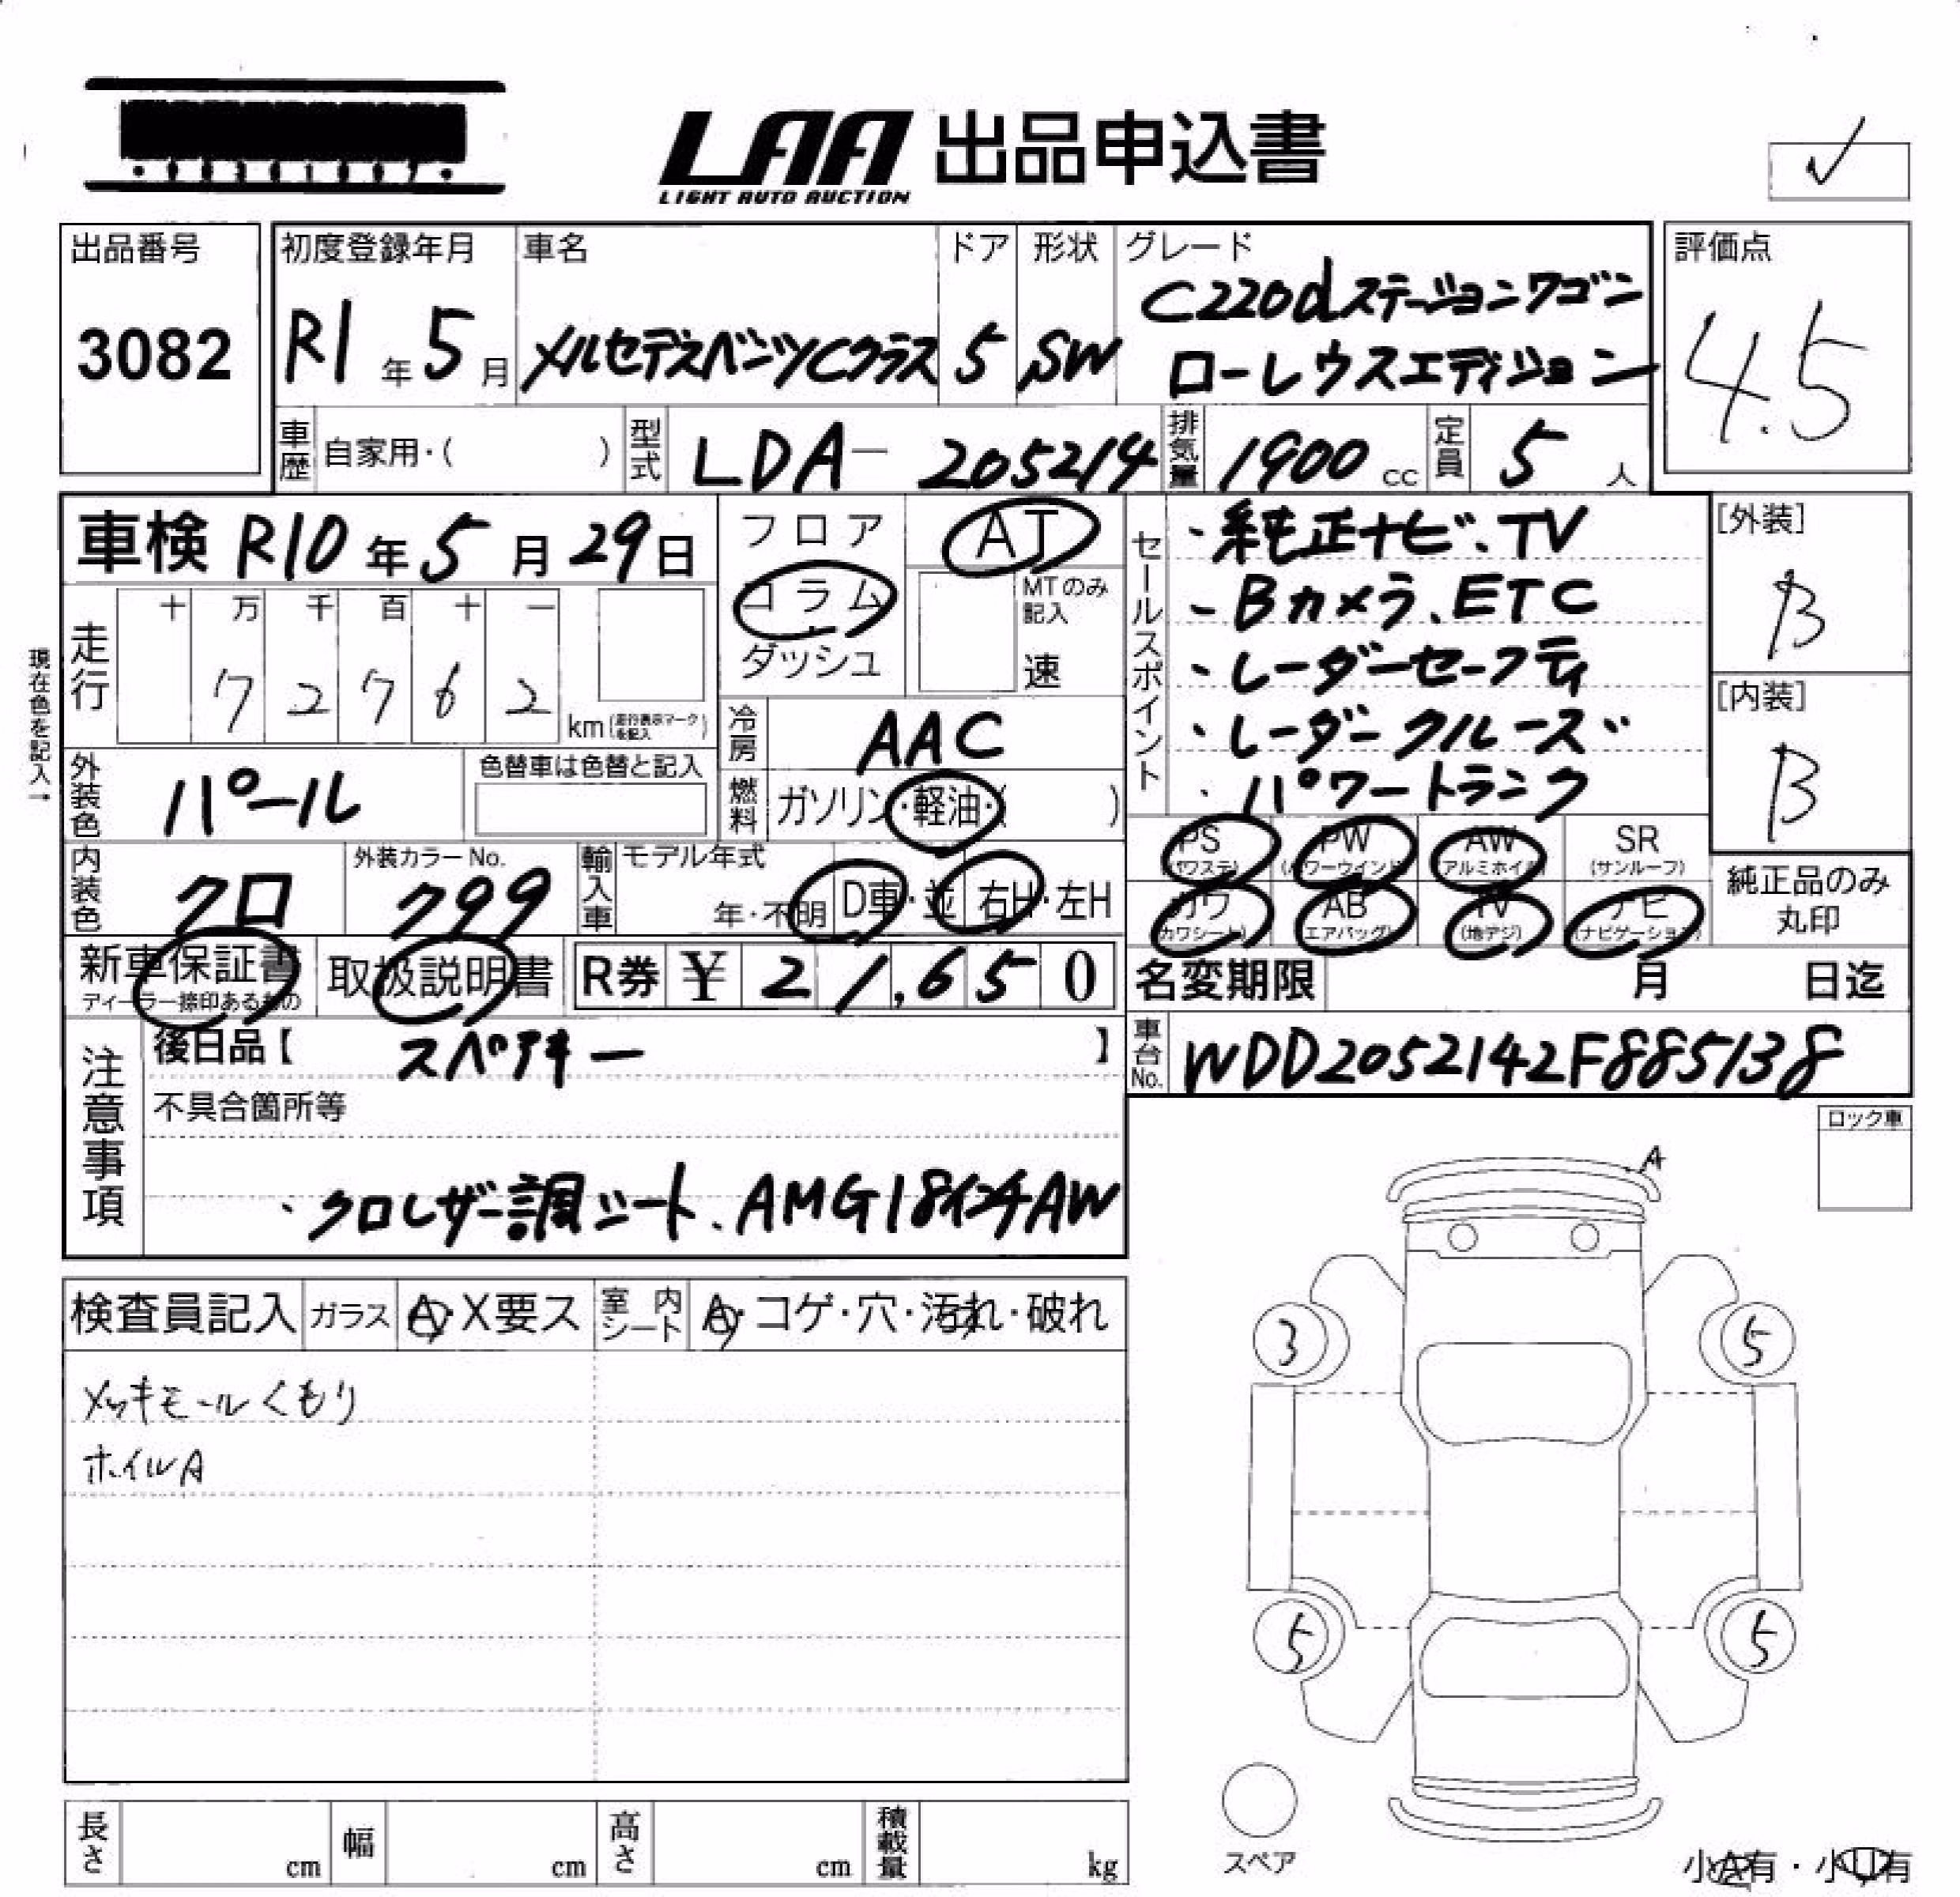 LAA 出品申込書
LIGHT AUTO AUCTION
✓
出品番号
3082
初度登録年月
R1年5月
車名
メルセデスベンツCクラス
ドア
5
形状
SW
グレード
C220dステーションワゴン
ローレウスエディション
評価点
4.5
車歴 自家用・( )
型式 LDA-205214
排気量 1900cc
定員 5人
車検 R10年5月29日
フロア
コラム
ダッシュ
AT
MTのみ記入
速
走行
十 万 千 百 十 一
7 2 7 6 2
km(走行表示マークを記入)
現在色を記入→
冷房 AAC
燃料 ガソリン・軽油・( )
外装色 パール
色替車は色替と記入
内装色 クロ
外装カラーNo.
799
輸入車 モデル年式
年・不明
D車・並
右H・左H
セールスポイント
・純正ナビ、TV
-Bカメラ、ETC
・レーダーセーフティ
・レーダークルーズ
・パワートランク
[外装]
B
[内装]
B
PS (パワステ)
PW (パワーウインド)
AW (アルミホイル)
SR (サンルーフ)
カワ (カワシート)
AB (エアバッグ)
TV (地デジ)
ナビ (ナビゲーション)
純正品のみ丸印
新車保証書
ディーラー捺印あるもの
取扱説明書
R券 ¥ 21,650
名変期限 月 日迄
車台No. WDD2052142F885138
注意事項
後日品【 スペアキー 】
不具合箇所等
・クロレザー調シート、AMG18インチAW
ロック車
A
検査員記入
ガラス A・X要ス
室内シート A・コゲ・穴・汚れ・破れ
メッキモールくもり
ホイルA
3
5
5
5
スペア
長さ cm
幅 cm
高さ cm
積載量 kg
小A有・小U有